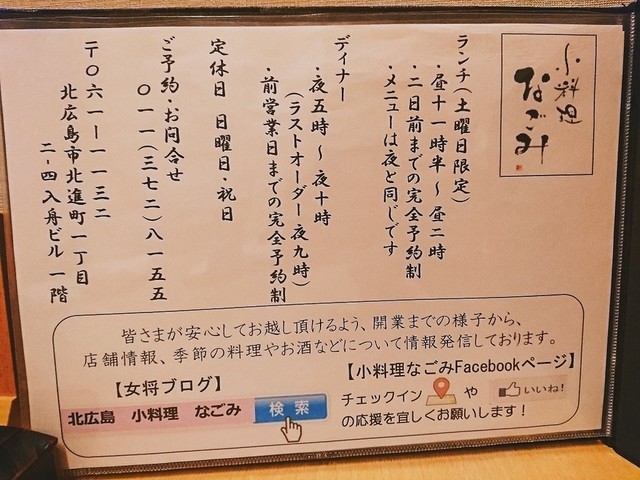 小料理
なごみ
ランチ(土曜日限定)
・昼十一時半～昼二時
・二日前までの完全予約制
・メニューは夜と同じです
ディナー
・夜五時～夜十時
(ラストオーダー夜九時)
・前営業日までの完全予約制
定休日 日曜日・祝日
ご予約・お問合せ
〇一一(三七二)八一五五
〒〇六一ー一一三二
北広島市北進町一丁目
二ー四入舟ビル一階
皆さまが安心してお越し頂けるよう、開業までの様子から、
店舗情報、季節の料理やお酒などについて情報発信しております。
【女将ブログ】
北広島 小料理 なごみ 検索
【小料理なごみFacebookページ】
チェックイン や いいね!
の応援を宜しくお願いします!